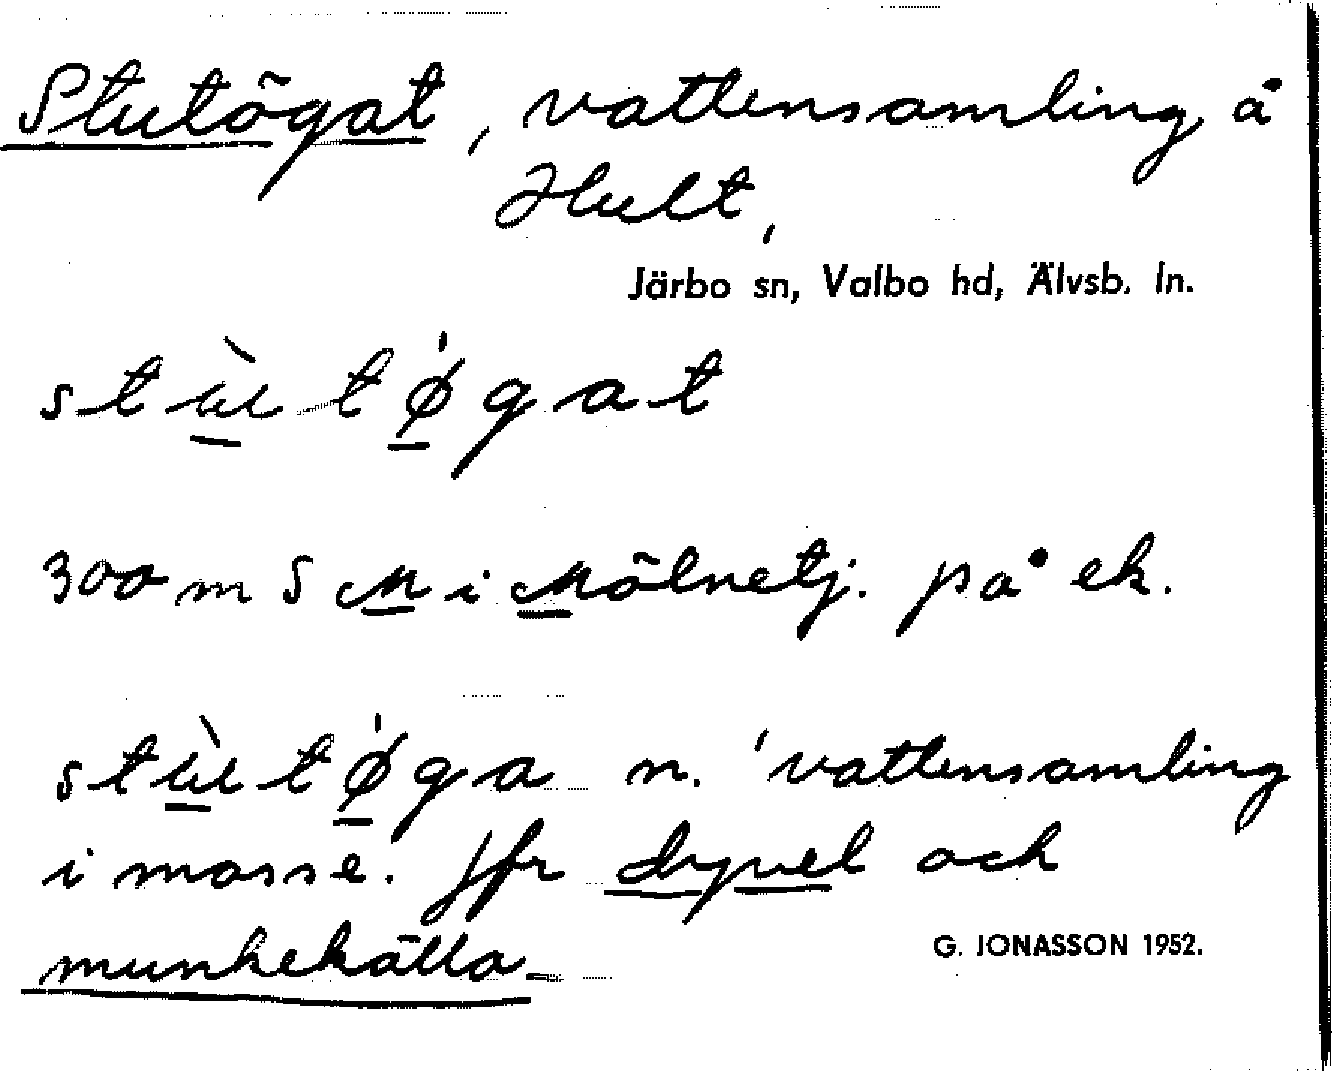 Stutögat, vattensamling å
Hult,
Järbo sn, Valbo hd, Älvsb. ln.
stù̲tǿ̲gat
300 m S M̲ i M̲ölnetj. på ek.
stù̲tǿ̲ga n. 'vattensamling
i mosse. Jfr dyvel och
munkekälla
G. JONASSON 1952.